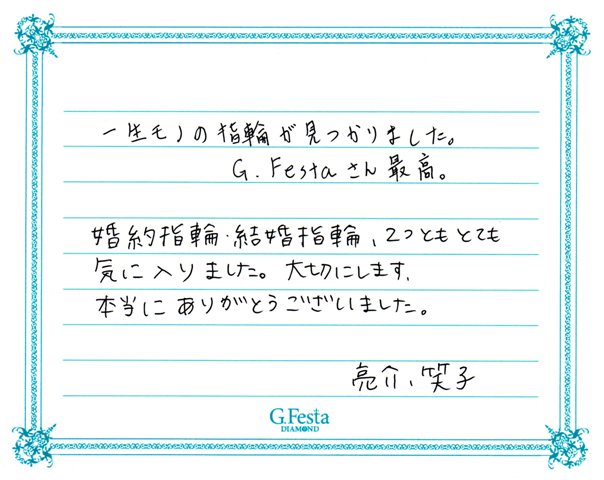 一生モノの指輪が見つかりました。
G.Festaさん最高。
婚約指輪・結婚指輪、2つともとても
気に入りました。大切にします。
本当にありがとうございました。
亮介、笑子
G.Festa
DIAMOND